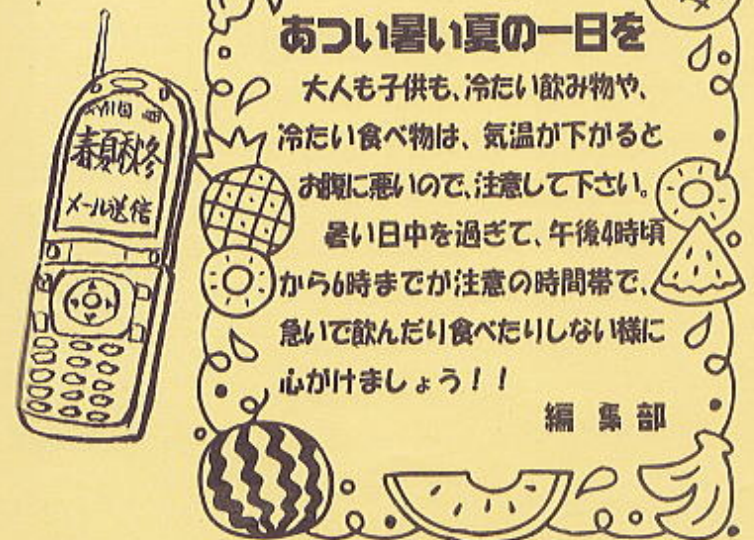 春夏秋冬
メール送信
あつい暑い夏の一日を
大人も子供も、冷たい飲み物や、
冷たい食べ物は、気温が下がると
お腹に悪いので、注意して下さい。
暑い日中を過ぎて、午後4時頃
から6時までが注意の時間帯で、
急いで飲んだり食べたりしない様に
心がけましょう!!
編集部